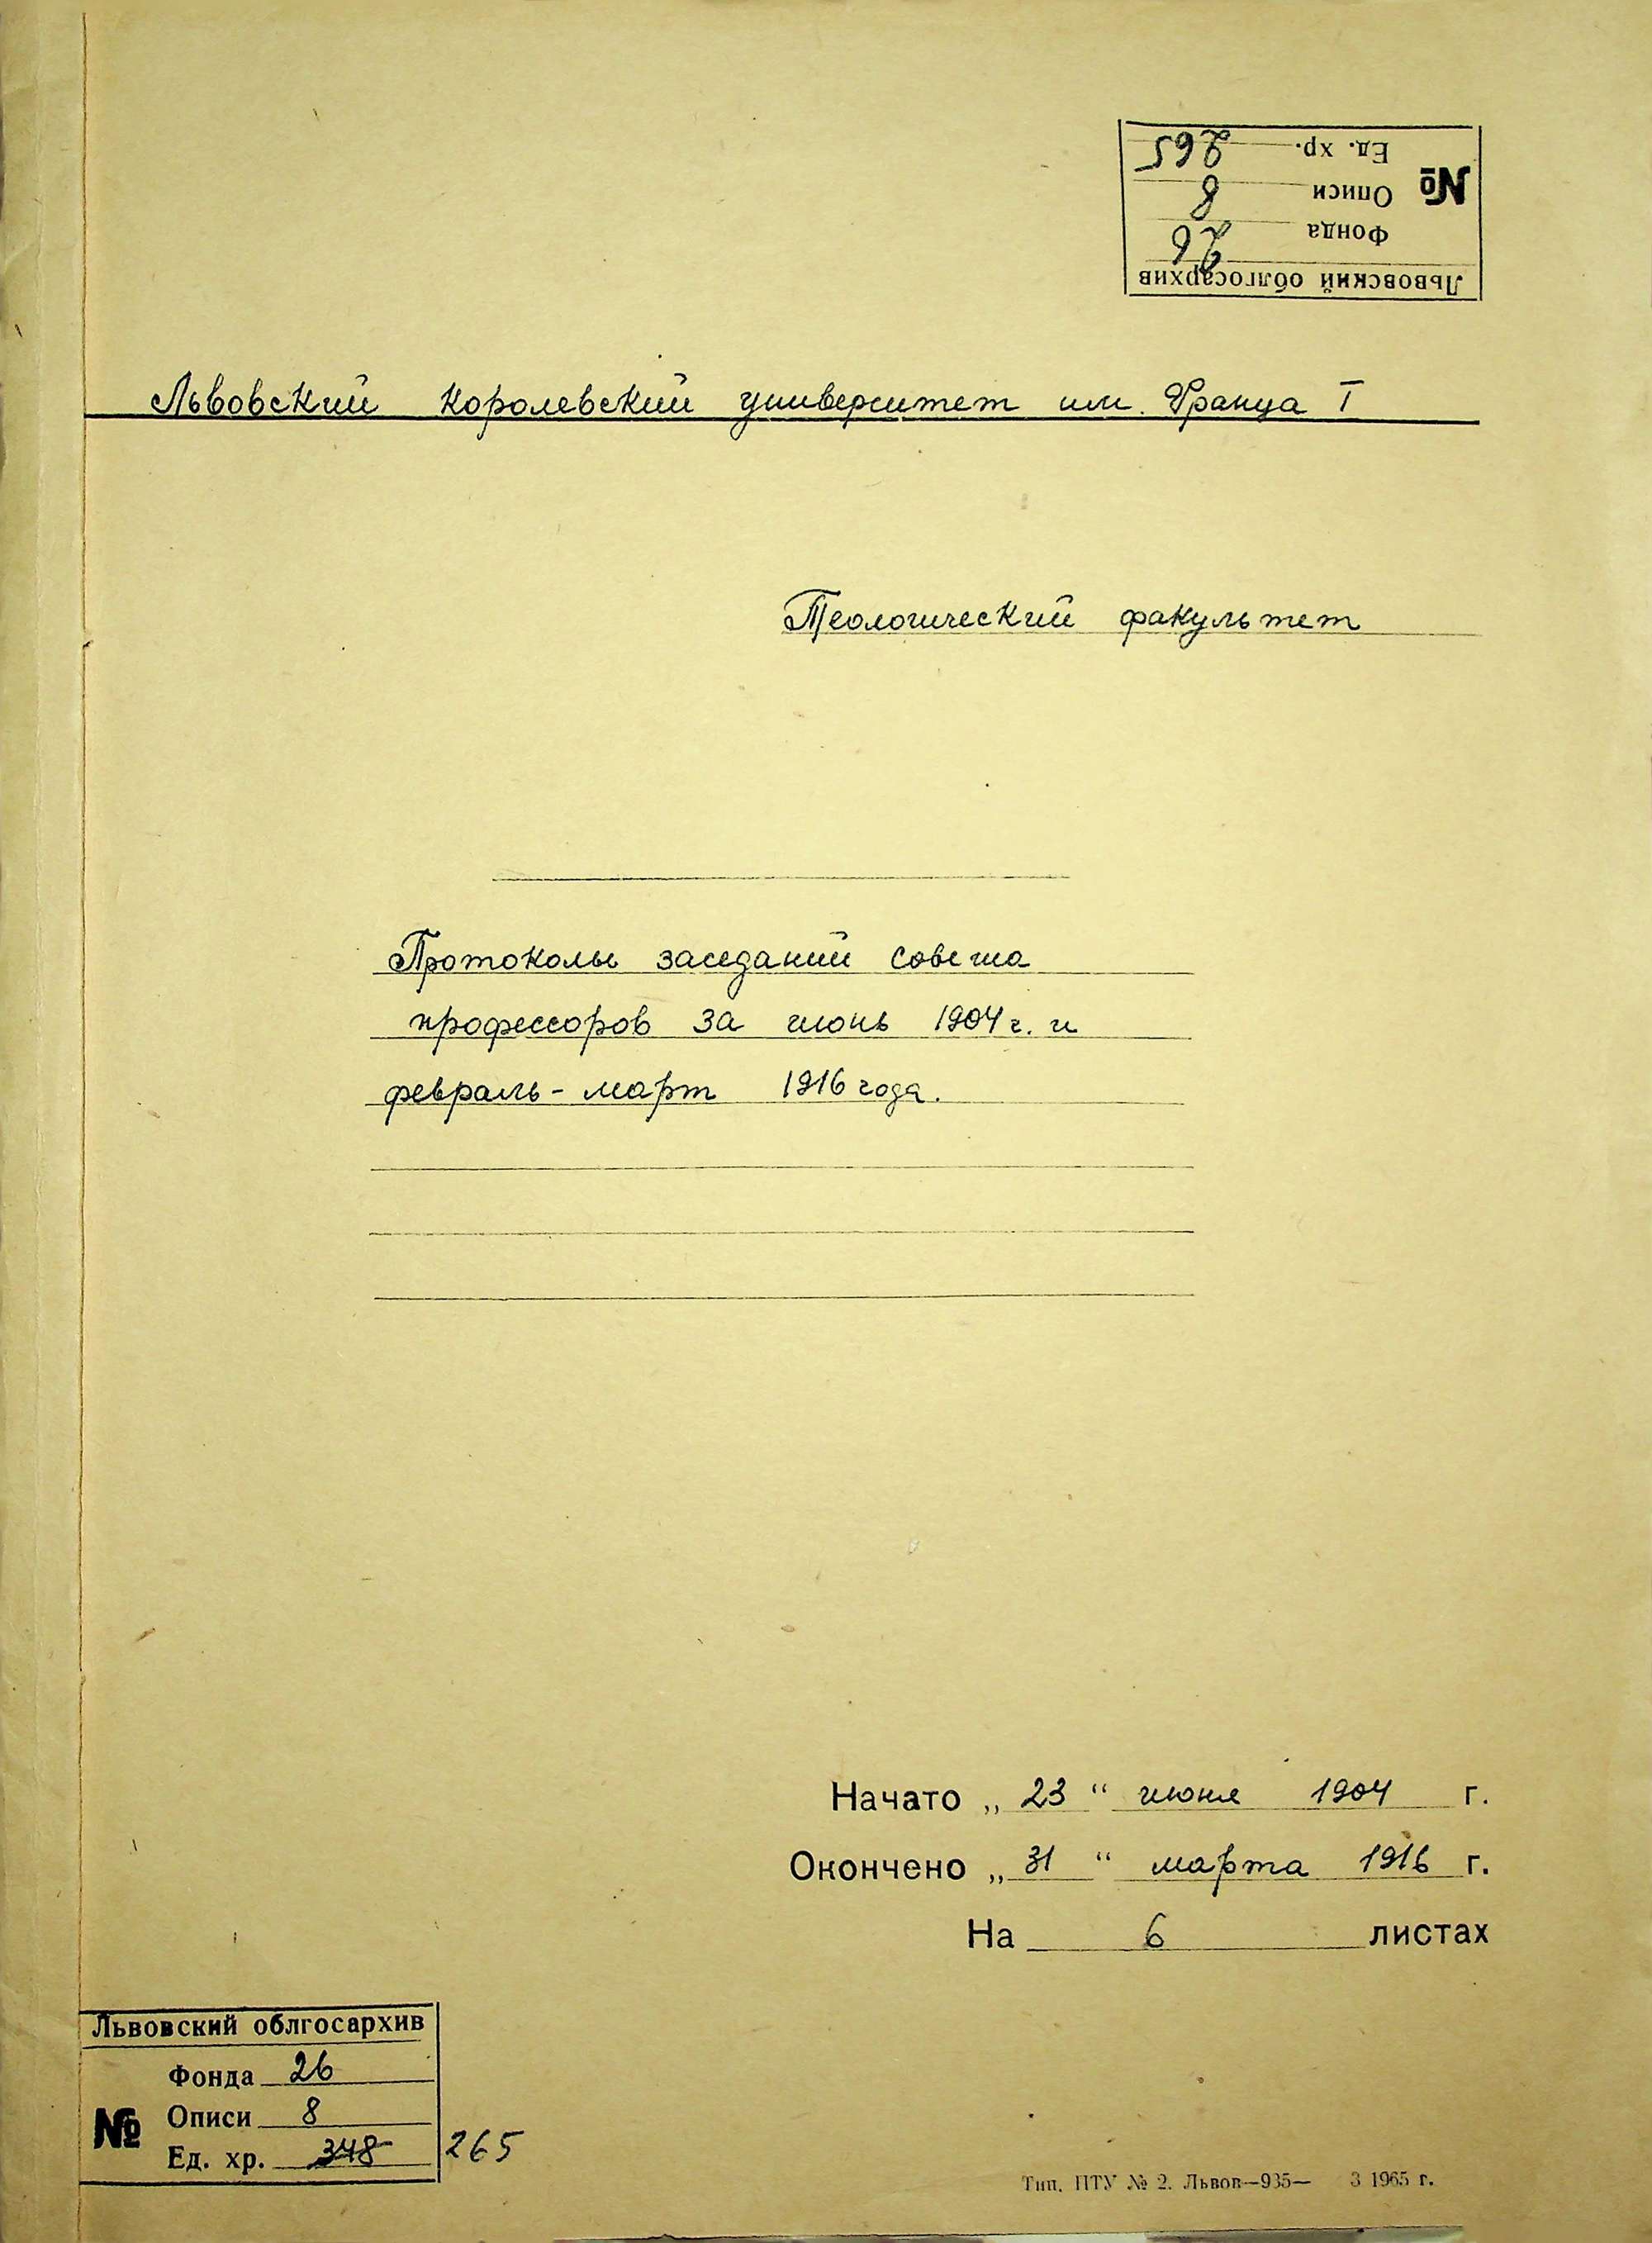 Львовский облгосархив
Фонда 26
№ Описи 8
Ед. хр. 265
Львовский королевский университет им. Франца I
Теологический факультет
Протоколы заседаний совета
профессоров за июнь 1904 г. и
февраль - март 1916 года.
Начато „ 23 “ июня 1904 г.
Окончено „ 31 “ марта 1916 г.
На 6 листах
Львовский облгосархив
Фонда 26
№ Описи 8
Ед. хр. 348 265
Тип. ПТУ № 2. Львов—935— З 1965 г.